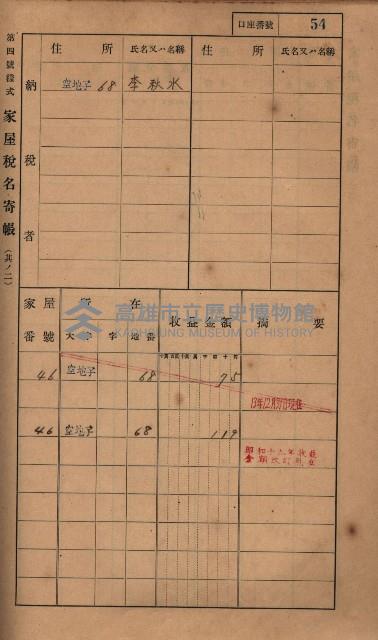 口座番號 54
第四號樣式 家屋稅名寄帳 (其ノ二)
納稅者
住所 氏名又ハ名稱 住所 氏名又ハ名稱
空地子 68 李秋水
家屋番號 所在 收益金額 摘要
大字 字 地番
高雄市立歷史博物館
KAOHSIUNG MUSEUM OF HISTORY
46 空地子 68 75
13年12月31日現在
46 空地子 68 119